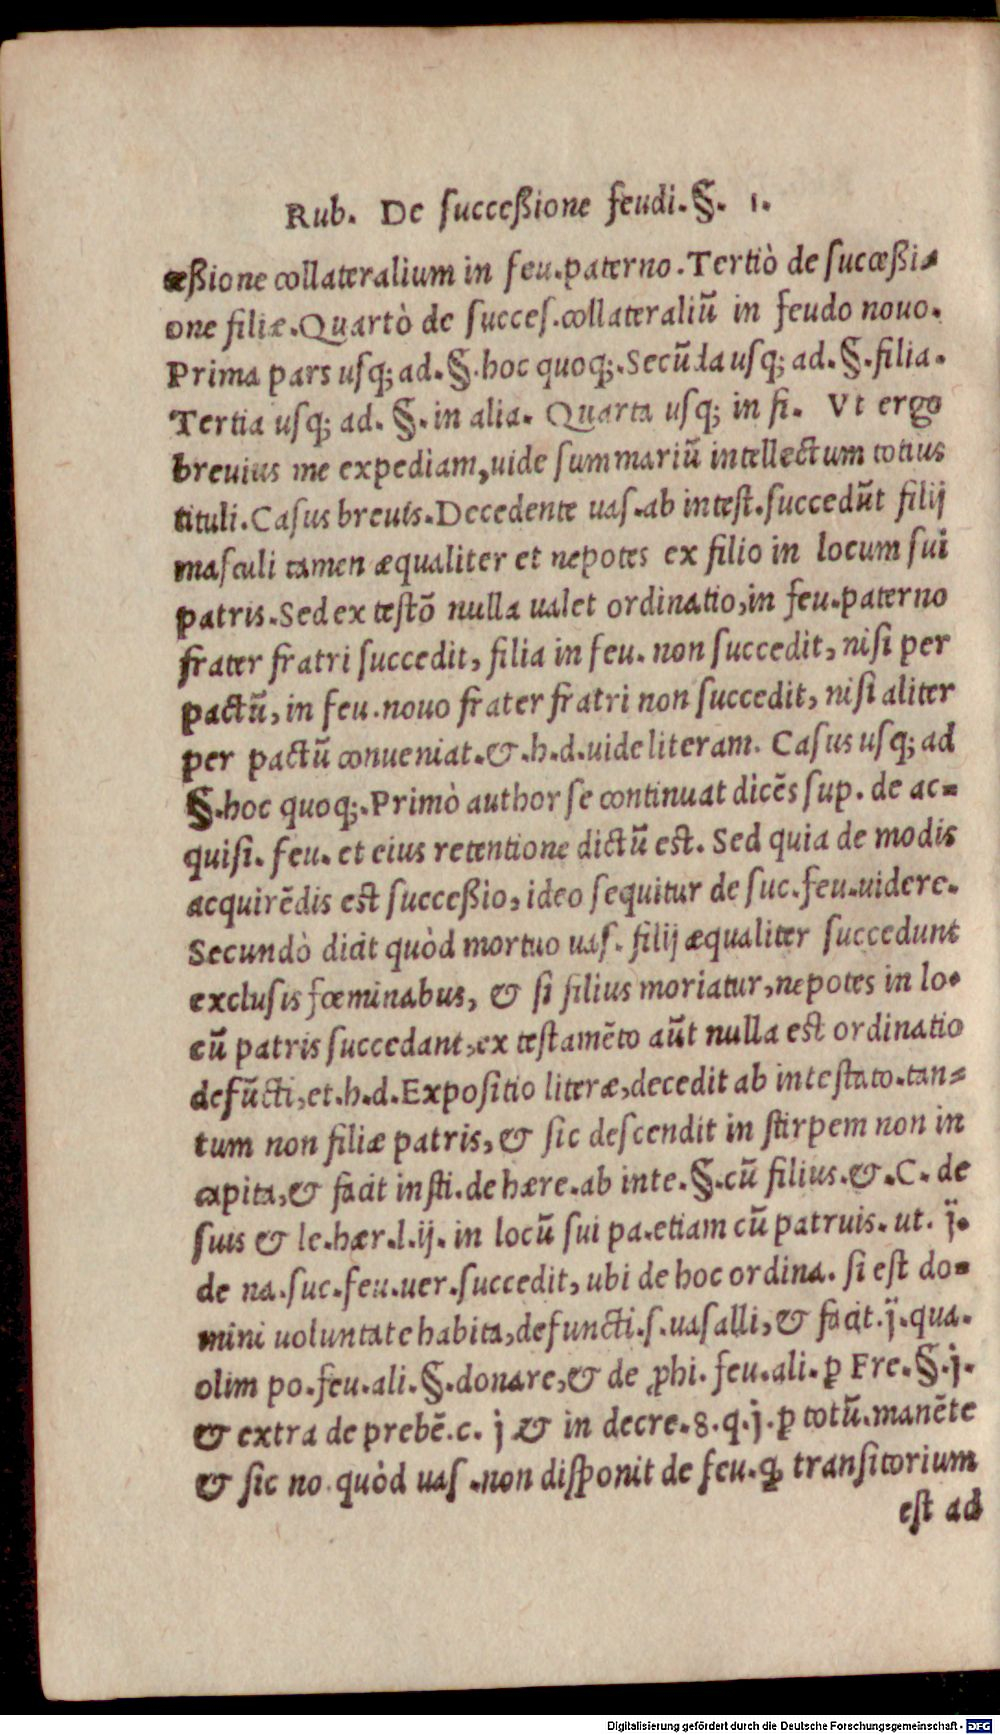 Rub. De succeßione feudi. §. 1.
ceßione collateralium in feu. paterno. Tertiò de succeßi-
one filiæ. Quartò de succes. collateraliũ in feudo nouo.
Prima pars usq; ad. §. hoc quoq;. Secũda usq; ad. §. filia.
Tertia usq; ad. §. in alia. Quarta usq; in fi. Vt ergo
breuius me expediam, uide summariũ intellectum totius
tituli. Casus breuis. Decedente uas. ab intest. succedũt filij
masculi tamen æqualiter et nepotes ex filio in locum sui
patris. Sed ex testõ nulla ualet ordinatio, in feu. paterno
frater fratri succedit, filia in feu. non succedit, nisi per
pactũ, in feu. nouo frater fratri non succedit, nisi aliter
per pactũ conueniat. & .h.d. uide literam. Casus usq; ad
§. hoc quoq;. Primò author se continuat dicẽs sup. de ac-
quisi. feu. et eius retentione dictũ est. Sed quia de modis
acquirẽdis est succeßio, ideo sequitur de suc. feu. uidere.
Secundò dicit quòd mortuo uas. filij æqualiter succedunt
exclusis fœminabus, & si filius moriatur, nepotes in lo-
cũ patris succedant, ex testamẽto aũt nulla est ordinatio
defũcti, et .h.d. Expositio literæ, decedit ab intestato. tan-
tum non filiæ patris, & sic descendit in stirpem non in
capita, & facit insti. de hære. ab inte. §. cũ filius. & .C. de
suis & le. hær. l. ij. in locũ sui pa. etiam cũ patruis. ut. j̈.
de na. suc. feu. uer. succedit, ubi de hoc ordina. si est do-
mini uoluntate habita, defuncti. s. uasalli, & facit. j̈. qua.
olim po. feu. ali. §. donare, & de ꝓhi. feu. ali. ꝑ Fre. §. j.
& extra de prebẽ. c. j & in decre. 8. q. j. ꝑ totũ. manẽte
& sic no. quòd uas. non disponit de feu. ꝗ transitorium
est ad
Digitalisierung gefördert durch die Deutsche Forschungsgemeinschaft - DFG